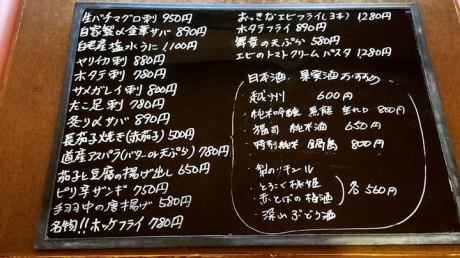 生バチマグロ刺 950円
自家製〆金華サバ 890円
白老産塩水うに 1100円
ヤリイカ刺 880円
ホタテ刺 780円
サメガレイ刺 800円
たこ足刺 780円
炙り〆サバ 890円
長茄子焼き(赤茄子) 500円
道産アスパラ(バター or 天ぷら) 780円
茄子と豆腐の揚げ出し 650円
ピリ辛ザンギ 750円
手羽中の唐揚げ 580円
名物!!ホッケフライ 780円
おっきなエビフライ(3本) 1280円
ホタテフライ 890円
の天ぷら 580円
エビのトマトクリームパスタ 1280円
日本酒 果実酒 おすすめ
越州 600円
純米吟醸 黒龍 垂れ口 800円
純米酒 650円
特別純米 鍋島 800円
和リキュール
・とろこく桃姫
・赤とんぼの梅酒
・深山ぶどう酒
各560円